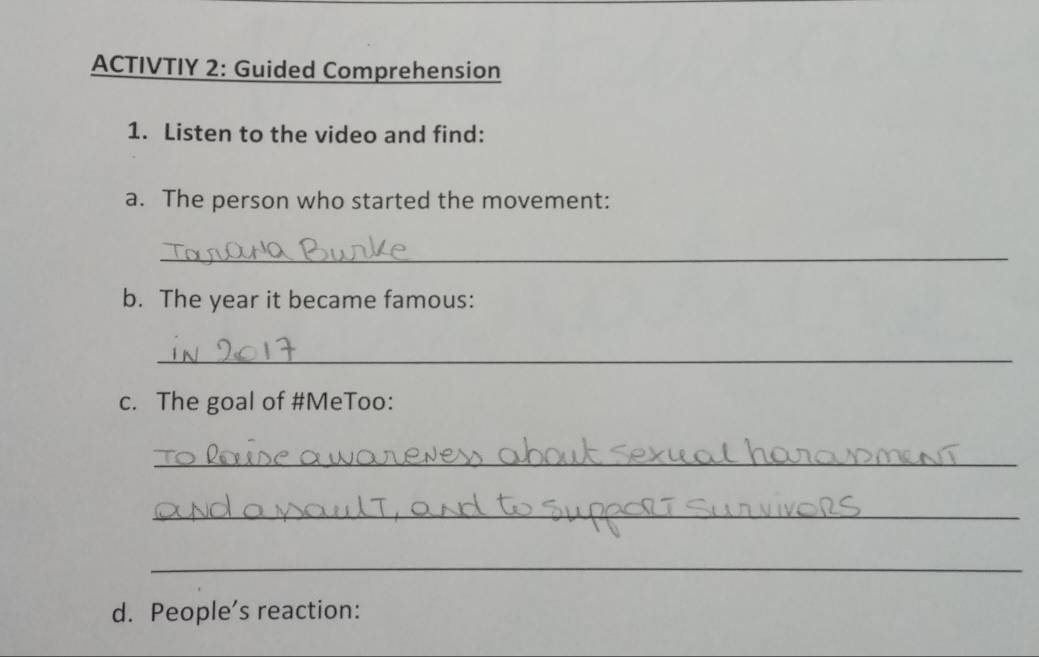 ACTIVTIY 2: Guided Comprehension
1. Listen to the video and find:
a. The person who started the movement:
Tarana Burke
b. The year it became famous:
in 2017
c. The goal of #MeToo:
To Raise awareness about sexual harassment
and assault, and to support survivors
d. People's reaction: